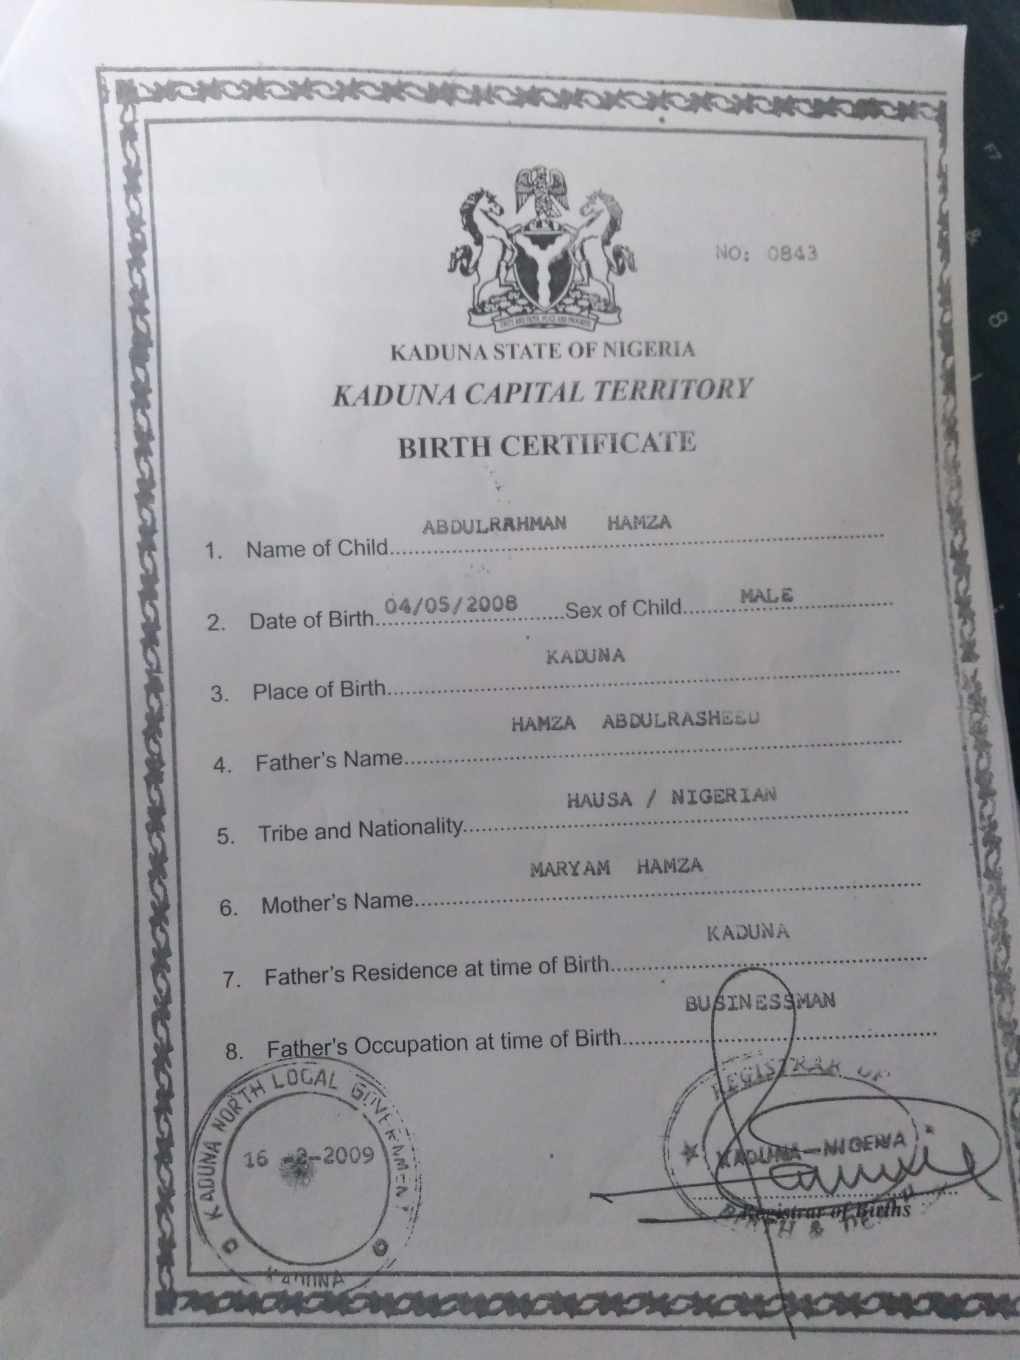 NO: 0843
KADUNA STATE OF NIGERIA
KADUNA CAPITAL TERRITORY
BIRTH CERTIFICATE
1. Name of Child ABDULRAHMAN HAMZA
2. Date of Birth 04/05/2008 Sex of Child MALE
3. Place of Birth KADUNA
4. Father's Name HAMZA ABDULRASHEED
5. Tribe and Nationality HAUSA / NIGERIAN
6. Mother's Name MARYAM HAMZA
7. Father's Residence at time of Birth KADUNA
8. Father's Occupation at time of Birth BUSINESSMAN
KADUNA NORTH LOCAL GOVERNMENT
16 -2-2009
KADUNA
REGISTRAR OF
KADUNA-NIGERIA
Registrar of Births
BIRTH &
F7
&
8